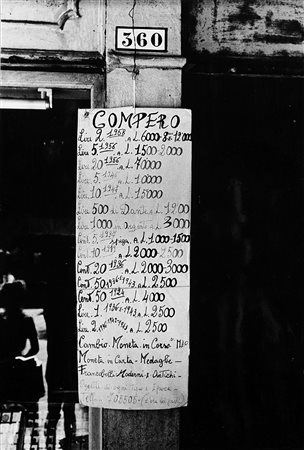 360
COMPERO
Lire 2 1958 a L 6000-8 e 12000
Lire 5 1956 a L 1500-2000
Lire 20 1956 a L 70000
Lire 5 1946 a L 10000
Lire 10 1947 a L 15000
Lire 500 di Dante a L 1200
Lire 1000 in argento a L 3000
Cent. 5 spiga a L 1000-1500
Cent. 10 a L 2000-2500
Cent. 20 1936 a L 2000-3000
Cent. 50 1936 e 1943 a L 2500
Cent. 50 1924 a L 4000
Lire 1 1936 e 1943 a L 2500
Lire 2 a L 2500
Cambio-Moneta "in Corso"
Moneta in Carta - Medaglie -
Francobolli Moderni e Antichi -
Oggetti di ogni tipo e Epoca -